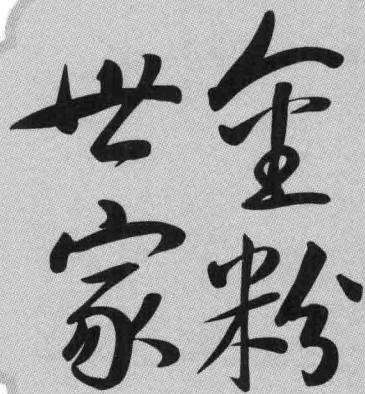 金粉
世家